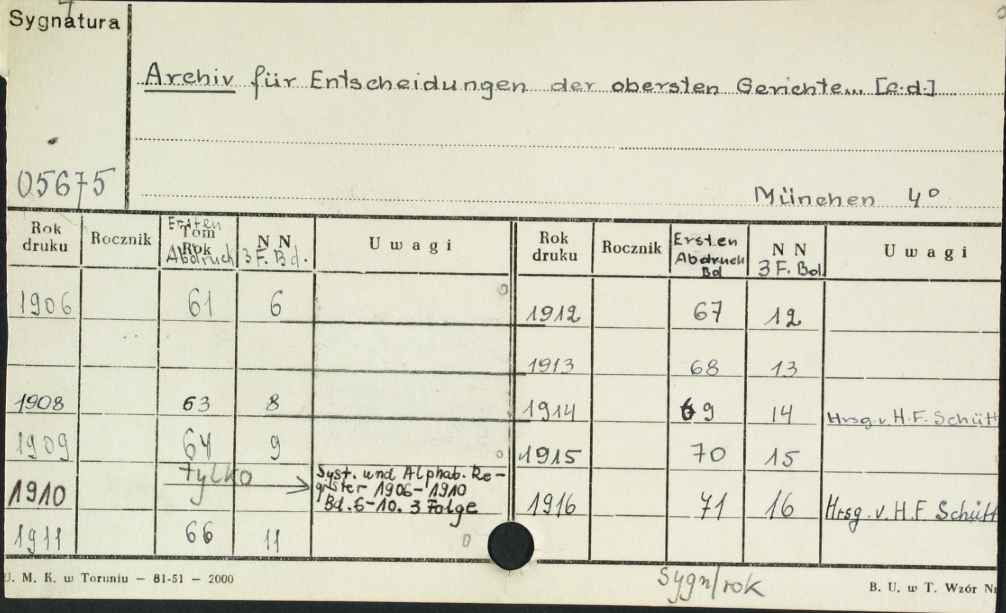 Sygnatura
Archiv für Entscheidungen der obersten Gerichte... [c.d.]
05675
München 4°
Rok druku Rocznik Ersten Tom Rok Abdruch N N 3 F. Bd. Uwagi Rok druku Rocznik Ersten Abdruck Bd N N 3 F. Bd. Uwagi
1906 61 6 1912 67 12
1913 68 13
1908 63 8 1914 69 14 Hrsg. v. H. F. Schütt
1909 64 9 1915 70 15
1910 tylko Syst. und Alphab. Re-
gister 1906-1910
Bd. 6-10. 3 Folge
1916 71 16 Hrsg. v. H. F. Schütt
1911 66 11
U. M. K. w Toruniu — 81-51 — 2000
Sygn/rok
B. U. w T. Wzór